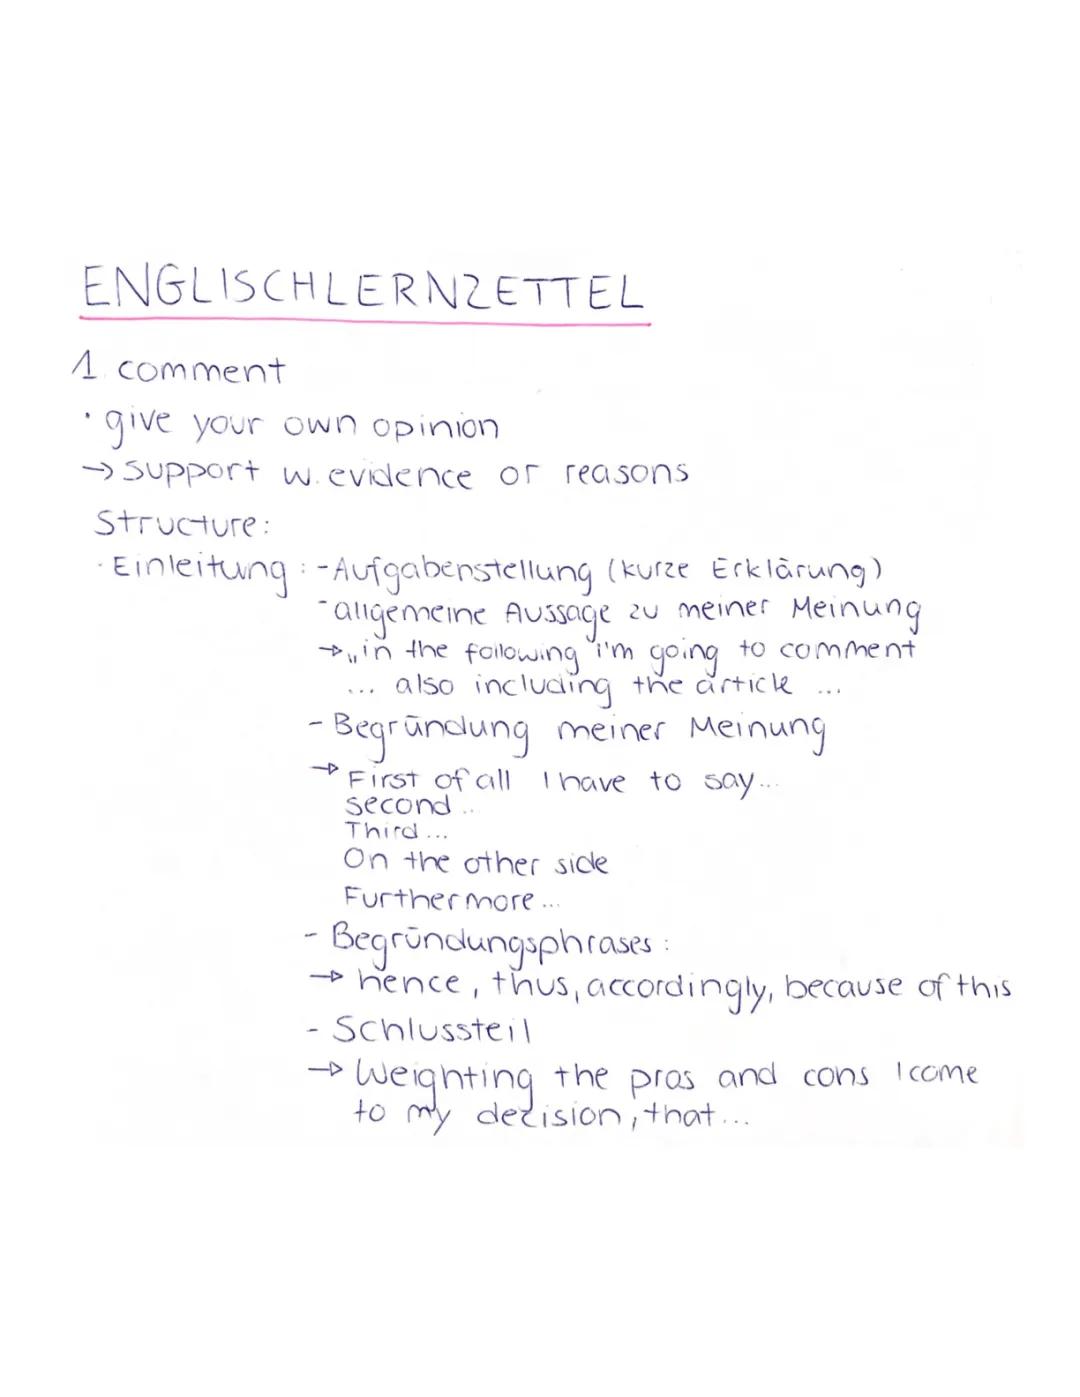 ENGLISCHLERNZETTEL
1 comment
· give your own opinion
→ support w. evidence or reasons
Structure:
· Einleitung : - Aufgabenstellung (kurze Erklärung)
- allgemeine Aussage zu meiner Meinung
→ „in the following i'm going to comment
... also including the article ...
- Begründung meiner Meinung
→ First of all I have to say...
second ..
Third ...
On the other side
Furthermore ...
- Begründungsphrases :
→ hence, thus, accordingly, because of this
- Schlussteil
→ Weighting the pros and cons I come
to my dezision, that...